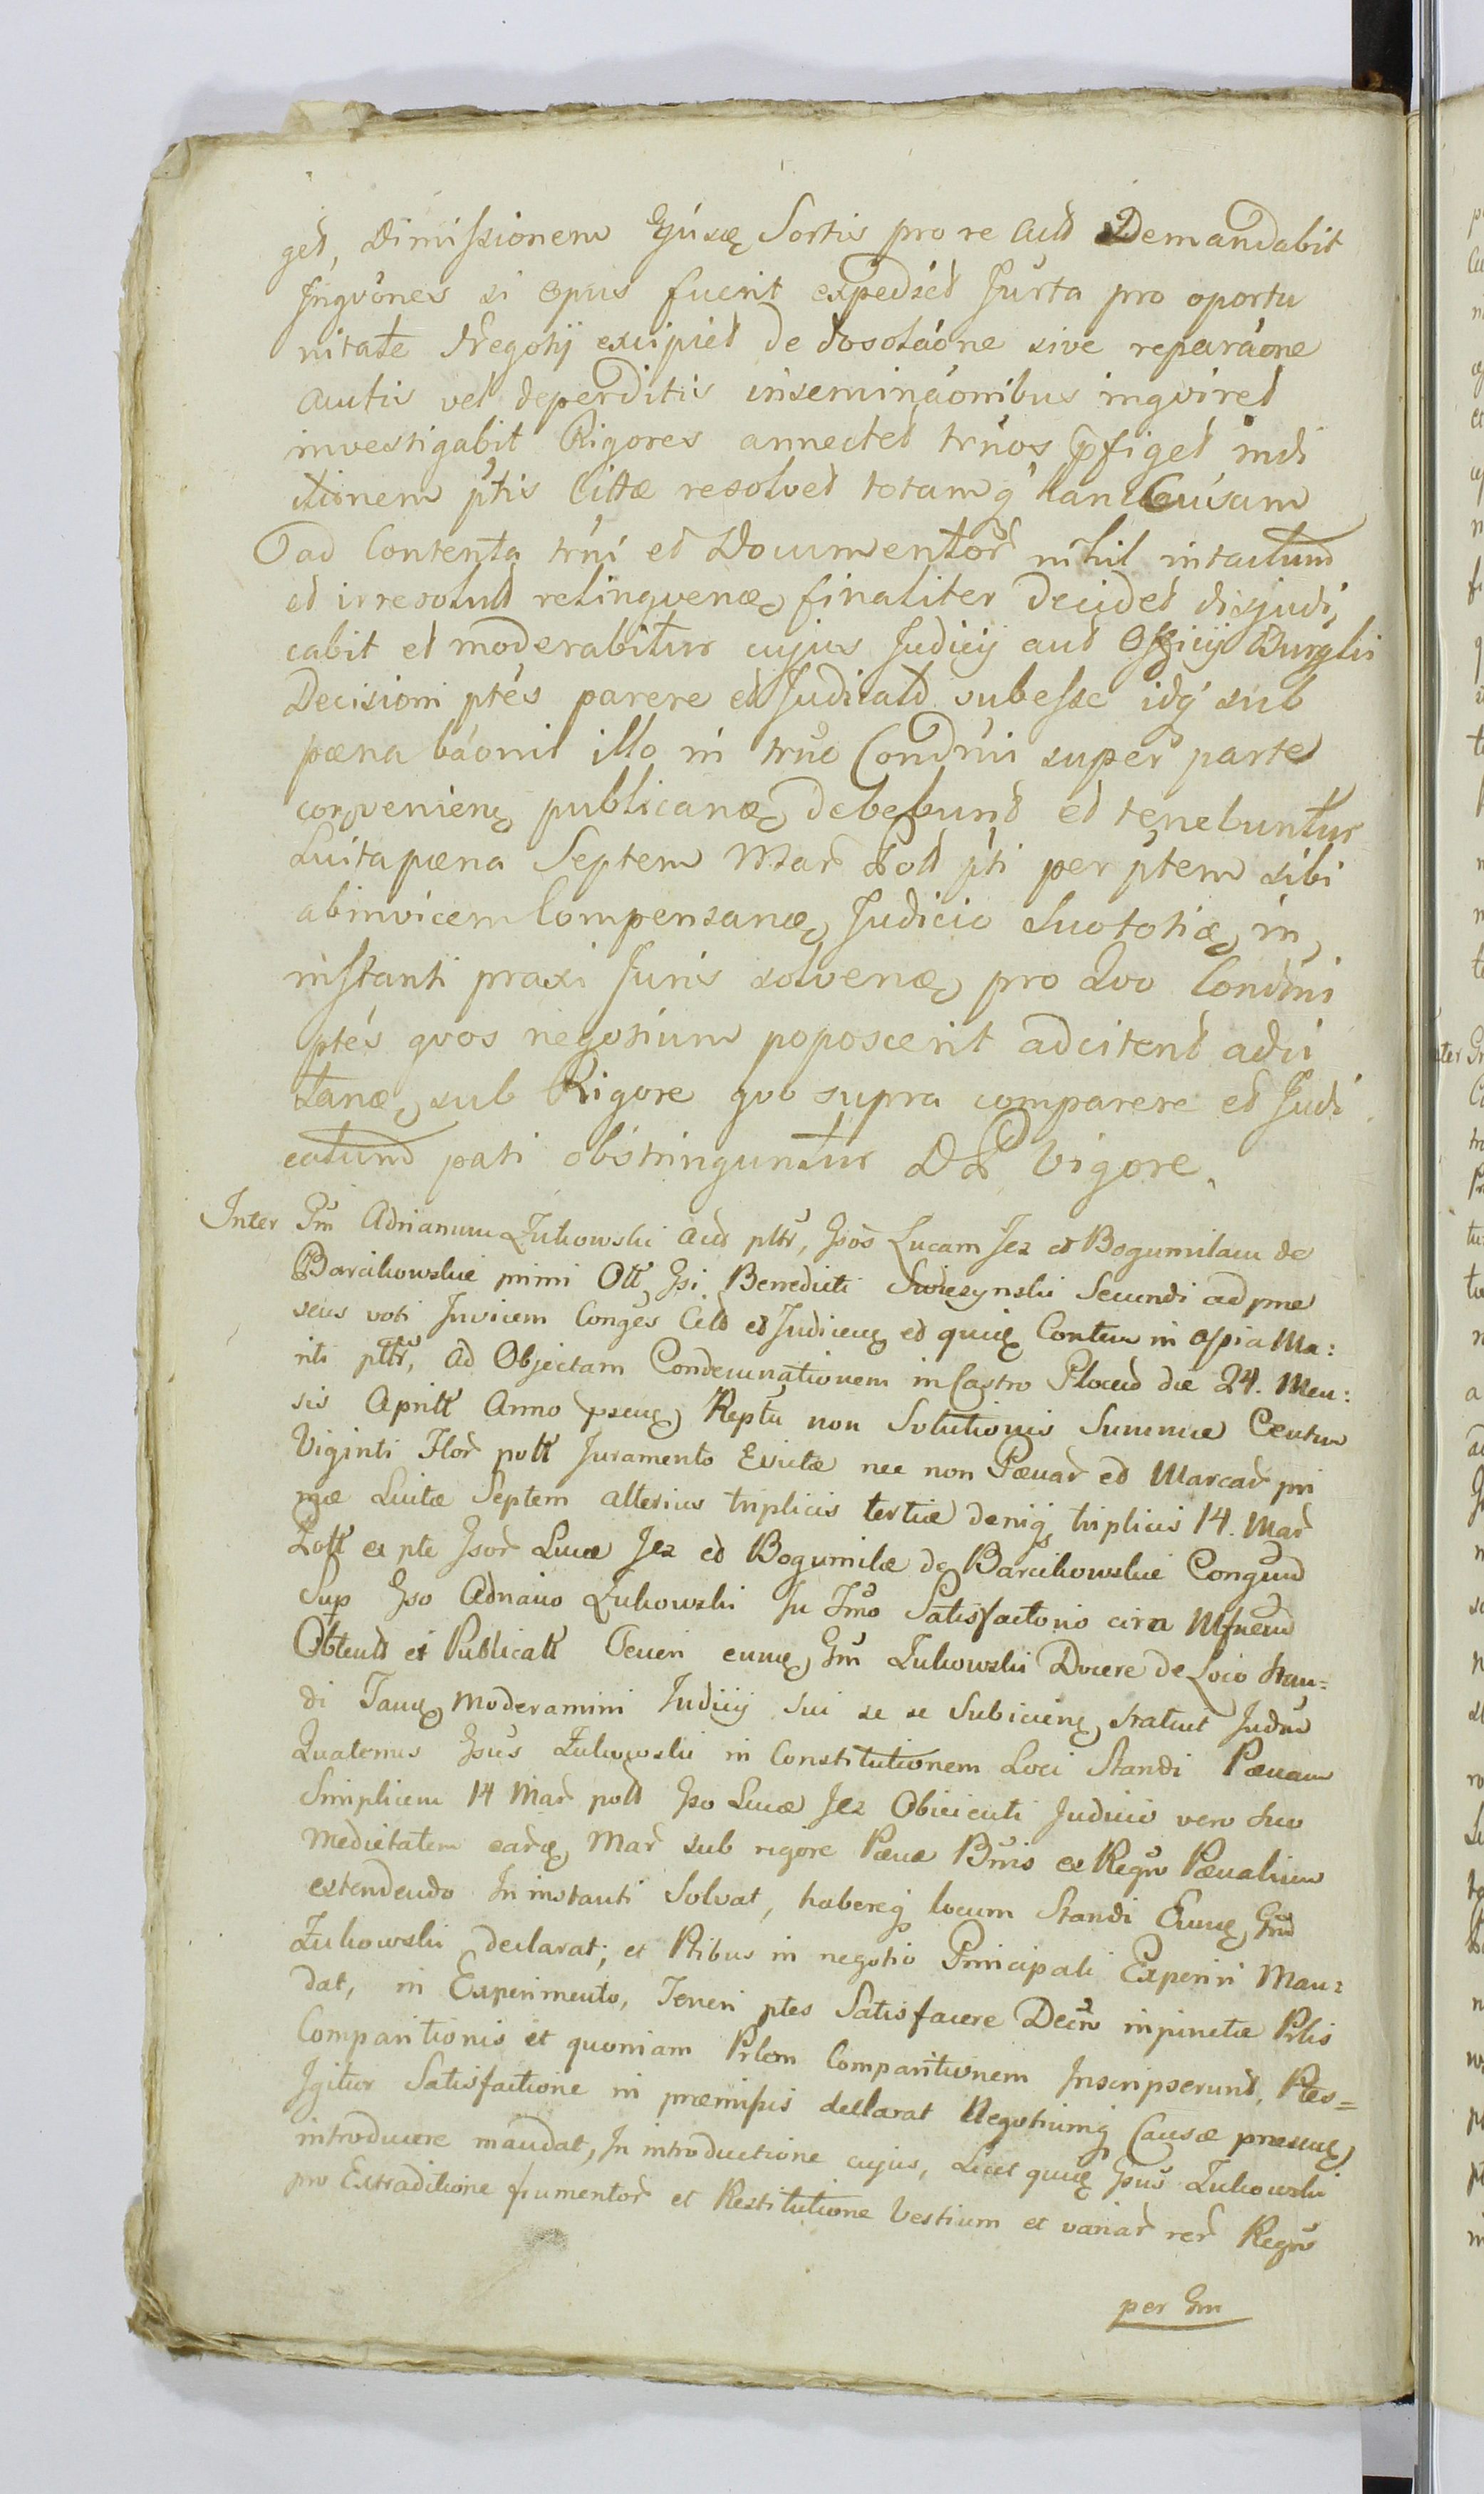 get, Dimissionem Ejusq Sortis pro re Actt Demandabit
Ingvónes si opus fuerit expediet Jurta pro oportu
nitate Negotij excipiet de dosolaóne sive reparaóne
autis vel deperditis inseminaónibus ingviret
investigabit Rigores annectet trúos pfiget indi
ctionem ptis Cittæ resolvet totamq hanc Causam
ad Contenta trni et Documentor nihil intactum
et irresolutt relinqvenæ finaliter decidet disjudi,
cabit et moderabitur cujus Judicij aut Officij Burglis
Decisioni ptes parere et Judicatt subesse idq sub
pæna báonis illo in truo Condnii super parte
conveniens publicanæ debebunt et tenebuntur
Luita pæna Septem Mar Poll pti per ptem sibi
abinvicem Compensanæ Judicio Suo totiæ, in,
instanti praxi Juris solvenæ pro Qvo Condni
ptes qvos negotium poposcerit adcitent adci
tanæ, sub Rigore qvo supra comparere et Judi
catum pati obstringuntur D P Vigore.
Inter Gm Adrianum Żukowski Actt pltr, Gsos Lucam Jez et Bogumilam de
Barcikowskie primi Ott Gsi Benedicti Swiezynski Secundi ad pme
seus voti Invicem Conges Citt et Judicenq et quicq Contun in assia Ma:
riti pttr, ad Objectam Condemnationem in Castro Plocen die 24. Men:
sis Aprill Anno psenq Reptu non Solutionis Summæ Centum
Viginti Flor poll Juramento Evictæ nec non Pænar et Marcar pri
mæ Luitæ Septem alterius triplicis tertiæ deniq triplicis 14. Mar
Poll ex pte Gsor Lucæ Jez et Bogumilæ de Barcikowskie Congum
Sup Gso Adriano Żukowski In Tmo Satisfactorio circa
Obtentt et Publicatt Teneri eumq Gm Żukowski Docere de Loco stan=
di Tanq Moderamini Judicij sui se se Subicienq statuit Judm
Quatenus Gsus Żukowski in Constitutionem Loci Standi Pænam
Simplicem 14 Mar poll Gso Lucæ Jez Obicienti Judicio vero suo
Medietatem earq Mar sub rigore Pænæ Bnis ex Regro Pænalium
extendendo In instanti Solvat, habereq locum Standi Eumq Gm
Żukowski declarat; et Ptibus in negotio Principali Experiri Man=
dat, in Experimento, Teneri ptes Satisfacere Decro inpinctæ Prlis
Comparitionis et quoniam Prlem Comparitionem Inscripserunt, Ptes=
Igitur Satisfactione in præmissis declarat Negotiumq Causæ præsenq
introducere mandat, In introductione cujus, Licet quicq Gsus Żukowski
pro Extraditione frumentor et Restitutione Vestium et variar rer Regro
per Gm